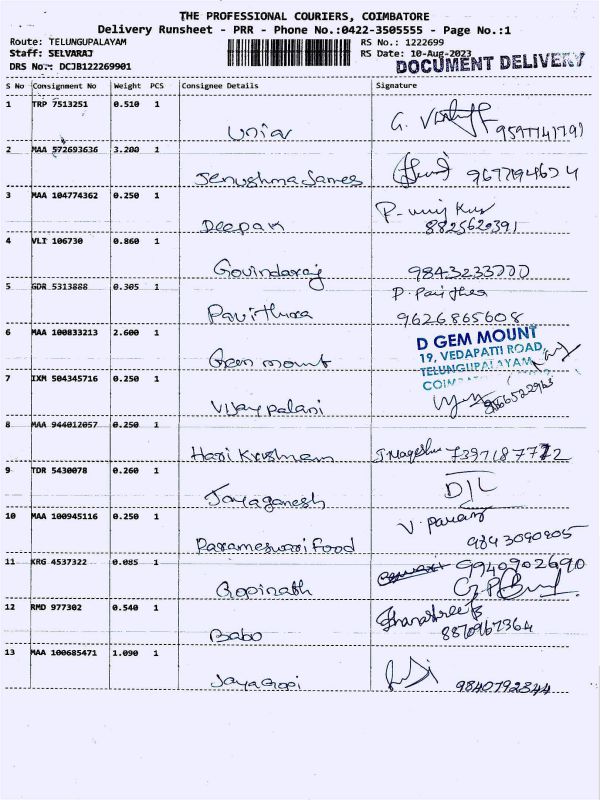 THE PROFESSIONAL COURIERS, COIMBATORE
Delivery Runsheet - PRR - Phone No.:0422-3505555 - Page No.:1
Route: TELUNGUPALAYAM RS No.: 1222699
Staff: SELVARAJ RS Date: 10-Aug-2023
DRS No.: DCJB122269901 DOCUMENT DELIVERY
S No Consignment No Weight PCS Consignee Details Signature
1 TRP 7513251 0.510 1
9597141791
2 MAA 572693636 3.200 1
Jenushma James 9677194674
3 MAA 104774362 0.250 1
Deepak 8825620391
4 VLI 106730 0.860 1
Govindaraj 9843233770
5 GDR 5313888 0.305 1
Pavithra 9626865608
6 MAA 100833213 2.600 1 D GEM MOUNT
19, VEDAPATTI ROAD,
Gem mount TELUNGUPALAYAM
7 IXM 504345716 0.250 1
Vijay palani
8 MAA 944012057 0.250 1
Hari Krishnan 7397187772
9 TDR 5430078 0.260 1
Jayaganesh
10 MAA 100945116 0.250 1
Parameswari Food 9843090905
11 KRG 4537322 0.085 1 9940902690
Gopinath
12 RMD 977302 0.540 1
Babo 8870967364
13 MAA 100685471 1.090 1
Jaya Gopi 9840792344